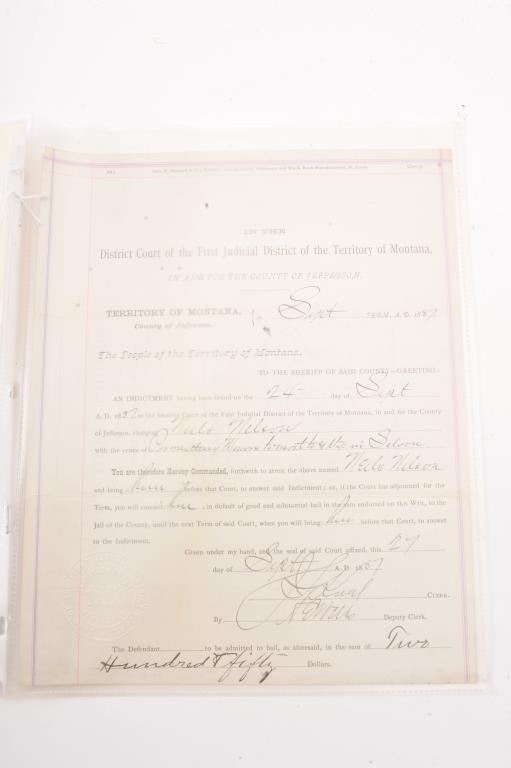 IN THE
District Court of the First Judicial District of the Territory of Montana,
IN AND FOR THE COUNTY OF JEFFERSON.
TERRITORY OF MONTANA,
County of Jefferson.
Sept TERM, A. D. 1887
The People of the Territory of Montana,
TO THE SHERIFF OF SAID COUNTY—GREETING:
AN INDICTMENT having been found on the 24 day of Sept
A. D. 1887 in the District Court of the First Judicial District of the Territory of Montana, in and for the County
of Jefferson, charging Nels Nelson
with the crime of in
You are therefore Hereby Commanded, forthwith to arrest the above named Nels Nelson
and bring him before that Court, to answer said Indictment; or, if the Court has adjourned for the
Term, you will commit him, in default of good and substantial bail in the sum endorsed on this Writ, to the
Jail of the County, until the next Term of said Court, when you will bring him before that Court, to answer
to the Indictment.
Given under my hand, and the seal of said Court affixed, this 27
day of Sept A. D. 1887
CLERK.
By Deputy Clerk.
The Defendant to be admitted to bail, as aforesaid, in the sum of Two
Hundred & fifty Dollars.